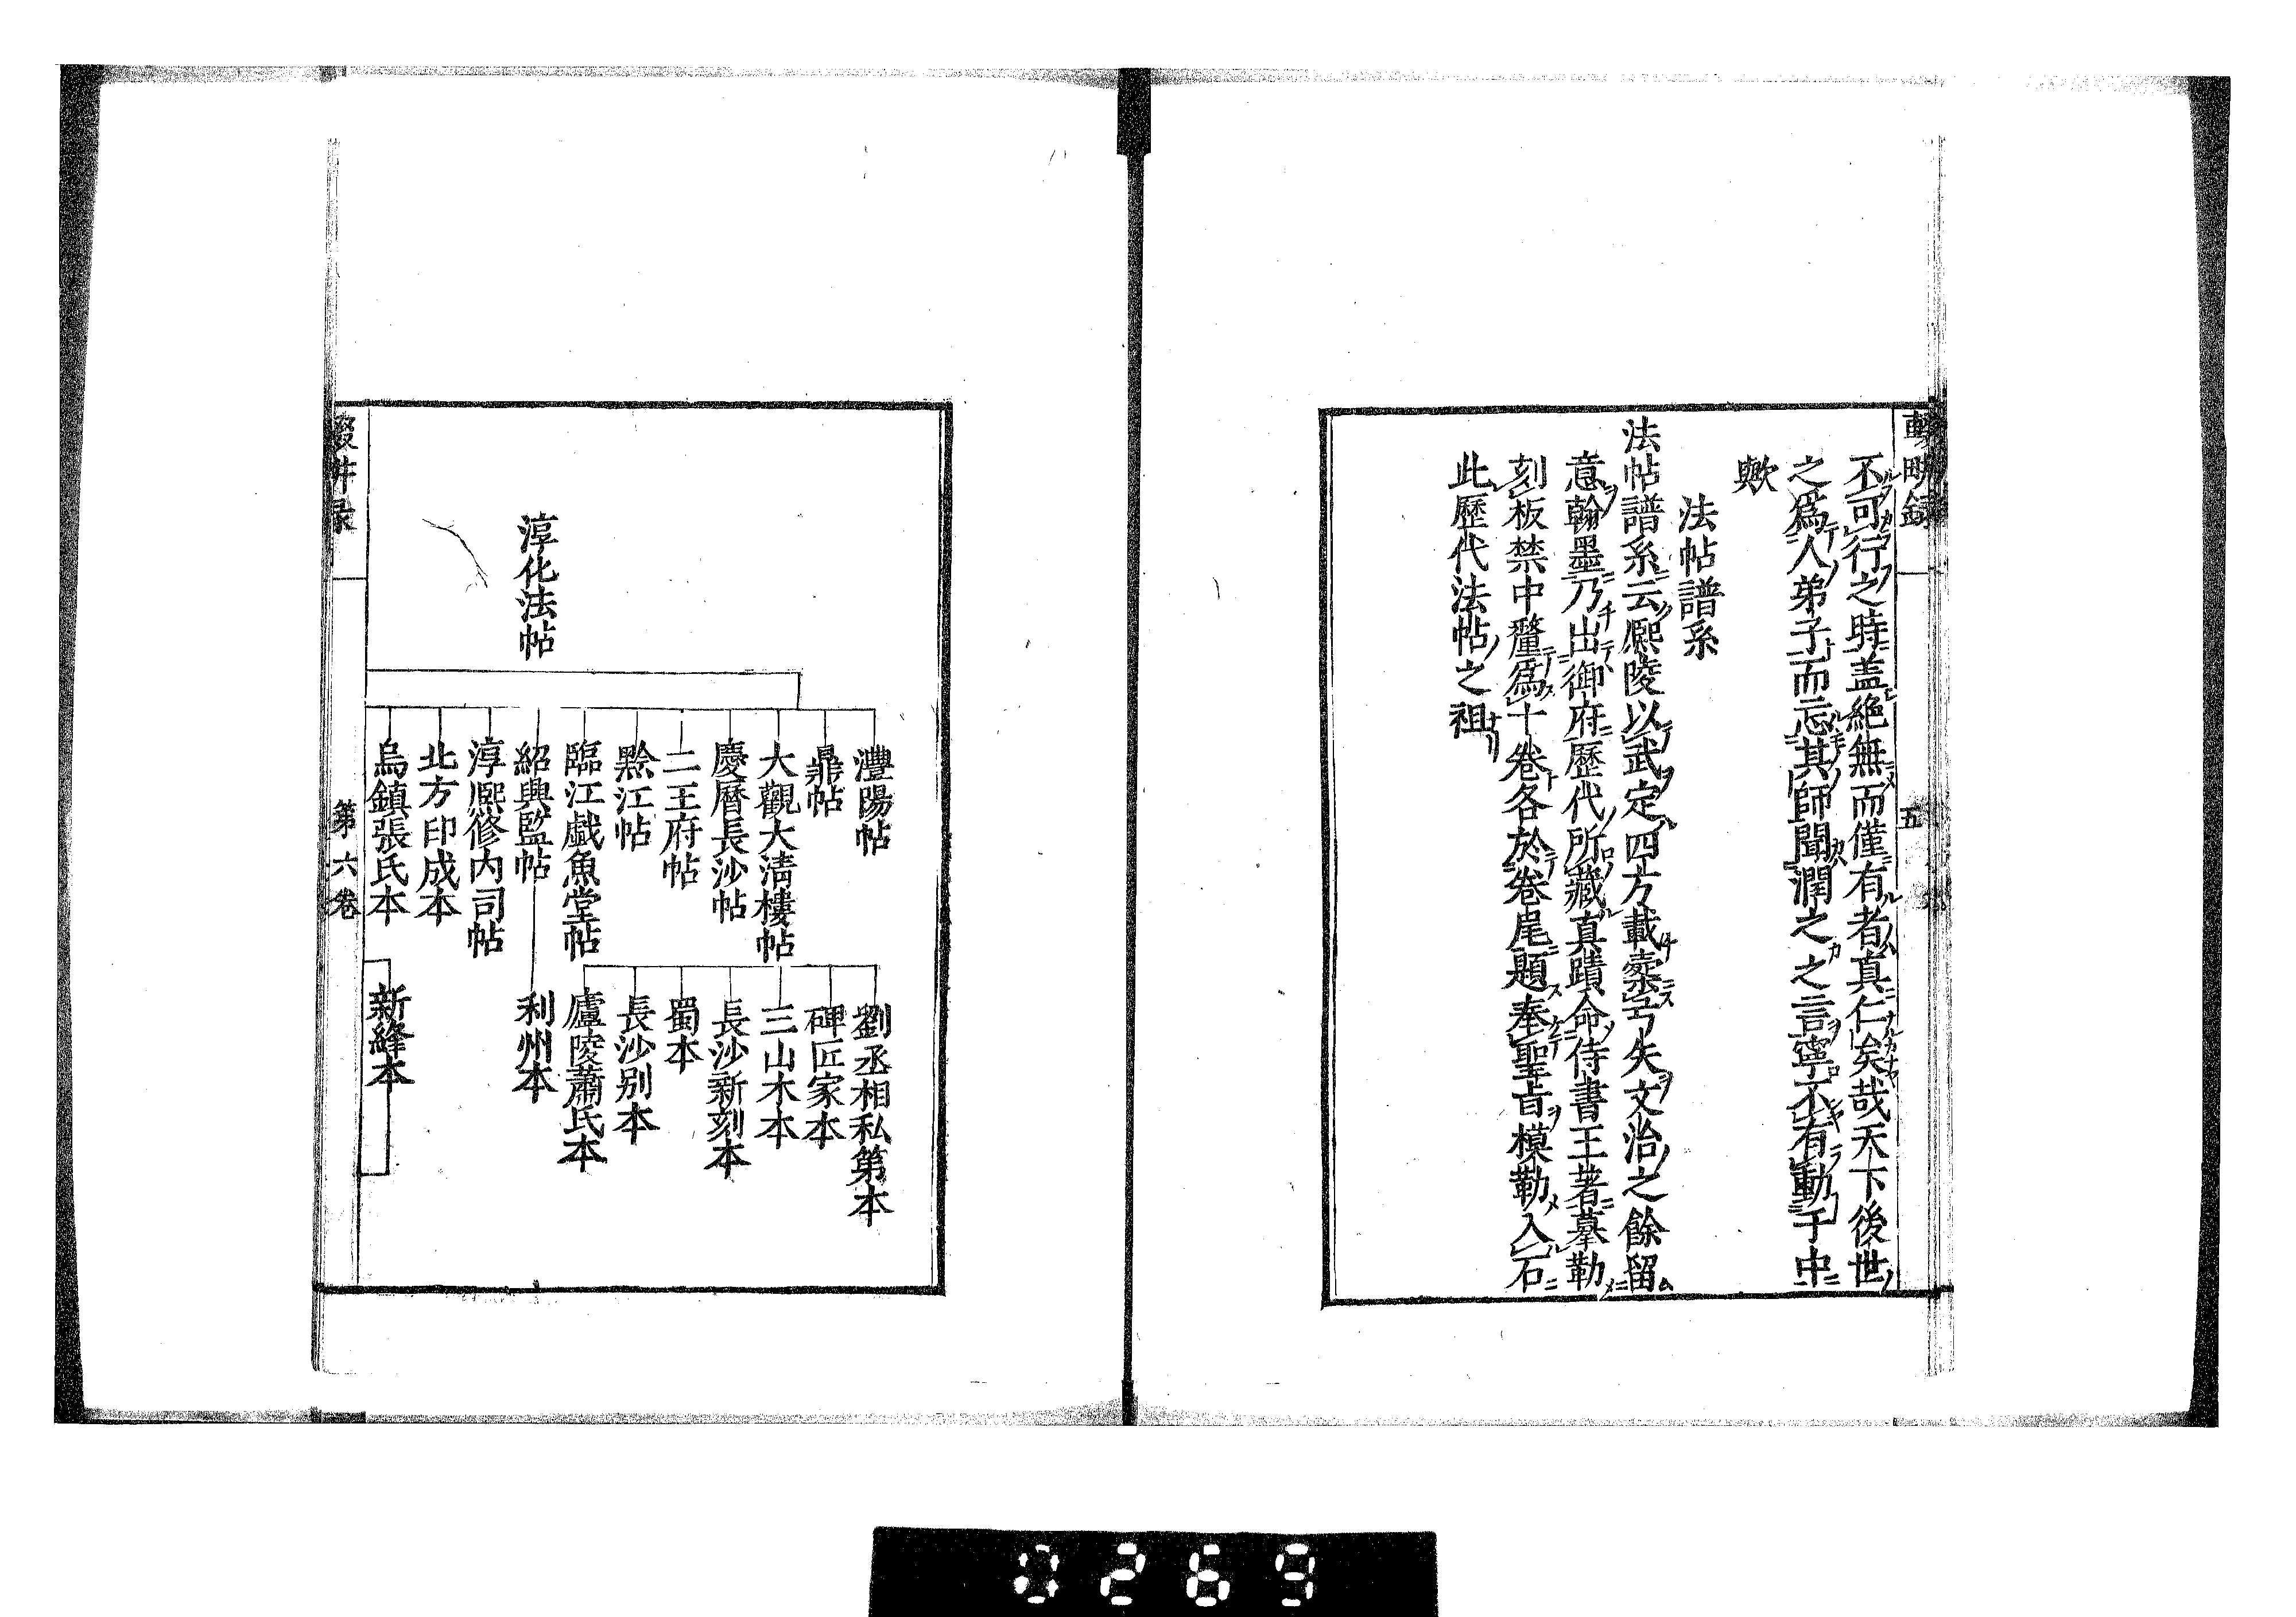 輟畊録
五
不可行之時盖絶無而僅有者真仁矣哉天下後世
之爲人弟子而忘其師聞潤之之言寧不有動于中
歟
法帖譜系
法帖譜系云熈陵以武定四方載櫜弓矢文治之餘留
意翰墨乃出御府歷代所藏真蹟命侍書王著摹勒
刻板禁中釐爲十卷各於卷尾題奉聖旨模勒入石
此歷代法帖之祖
淳化法帖
灃陽帖
鼎帖
大觀大清樓帖
慶曆長沙帖
二王府帖
黔江帖
臨江戯魚堂帖
紹興監帖
淳熈修内司帖
北方印成本
烏鎮張氏本
劉丞相私第本
碑匠家本
三山木本
長沙新刻本
蜀本
長沙别本
廬陵蕭氏本
利州本
新絳本
輟畊録
第六卷
0269